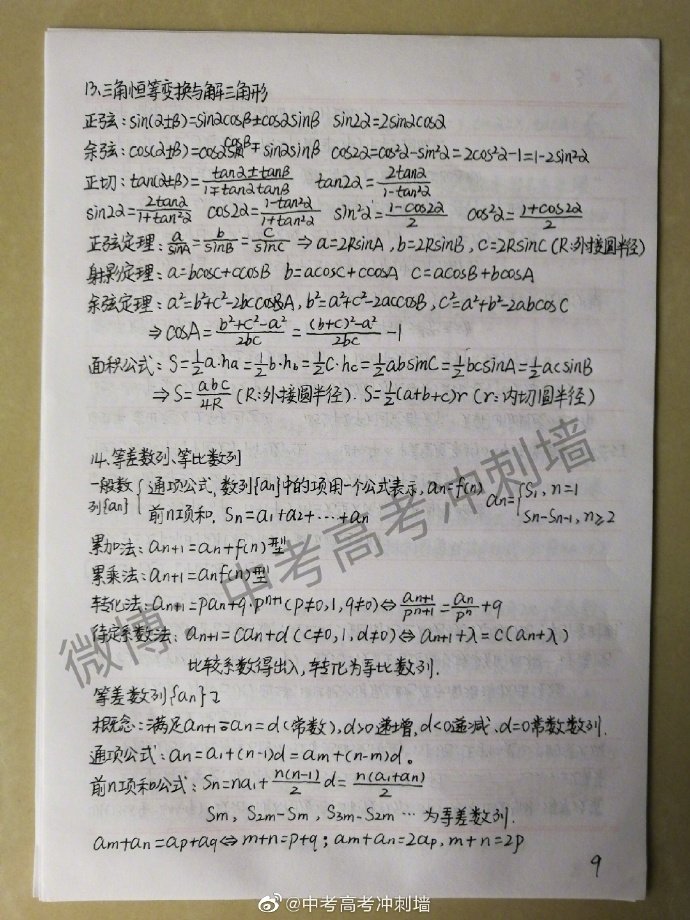 13、三角恒等变换与解三角形
正弦: sin(α±β)=sinαcosβ±cosαsinβ sin2α=2sinαcosα
余弦: cos(α±β)=cosαcosβ∓sinαsinβ cos2α=cos²α-sin²α=2cos²α-1=1-2sin²α
正切: tan(α±β)=(tanα±tanβ)/(1∓tanαtanβ) tan2α=2tanα/(1-tan²α)
sin2α=2tanα/(1+tan²α) cos2α=(1-tan²α)/(1+tan²α) sin²α=(1-cos2α)/2 cos²α=(1+cos2α)/2
正弦定理: a/sinA=b/sinB=c/sinC ⇒ a=2RsinA, b=2RsinB, c=2RsinC (R:外接圆半径)
射影定理: a=bcosC+ccosB b=acosC+ccosA c=acosB+bcosA
余弦定理: a²=b²+c²-2bccosA, b²=a²+c²-2accosB, c²=a²+b²-2abcosC
⇒ cosA=(b²+c²-a²)/2bc=((b+c)²-a²)/2bc-1
面积公式: S=½a·ha=½b·hb=½c·hc=½absinC=½bcsinA=½acsinB
⇒ S=abc/4R (R:外接圆半径). S=½(a+b+c)r (r:内切圆半径)
14、等差数列、等比数列
一般数列{an} { 通项公式, 数列{an}中的项用一个公式表示, an=f(n)
前n项和, Sn=a1+a2+…+an
an={S1, n=1
Sn-Sn-1, n≥2
累加法: an+1=an+f(n)型
累乘法: an+1=anf(n)型
转化法: an+1=pan+q·pⁿ⁺¹(p≠0,1,q≠0)⇔an+1/pⁿ⁺¹=an/pⁿ+q
待定系数法: an+1=can+d(c≠0,1,d≠0)⇔an+1+λ=c(an+λ)
比较系数得出λ, 转化为等比数列.
等差数列{an}
概念: 满足an+1-an=d(常数), d>0递增, d<0递减, d=0常数数列.
通项公式: an=a1+(n-1)d=am+(n-m)d。
前n项和公式: Sn=na1+n(n-1)/2 d=n(a1+an)/2
Sm, S2m-Sm, S3m-S2m … 为等差数列.
am+an=ap+aq⇔m+n=p+q; am+an=2ap, m+n=2p
9
微博 中考高考冲刺墙
@中考高考冲刺墙